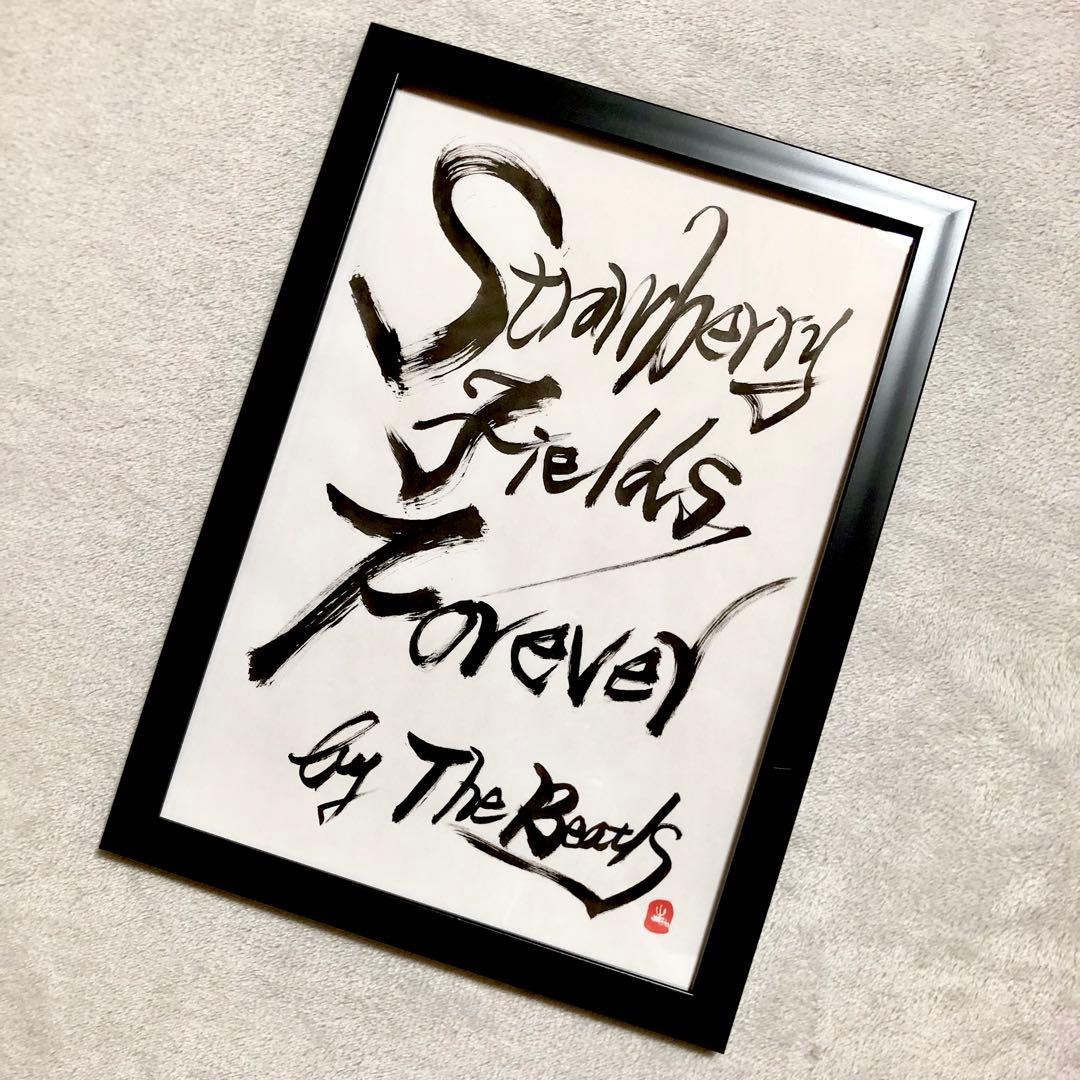 Strawberry
Fields
Forever
by The Beatls